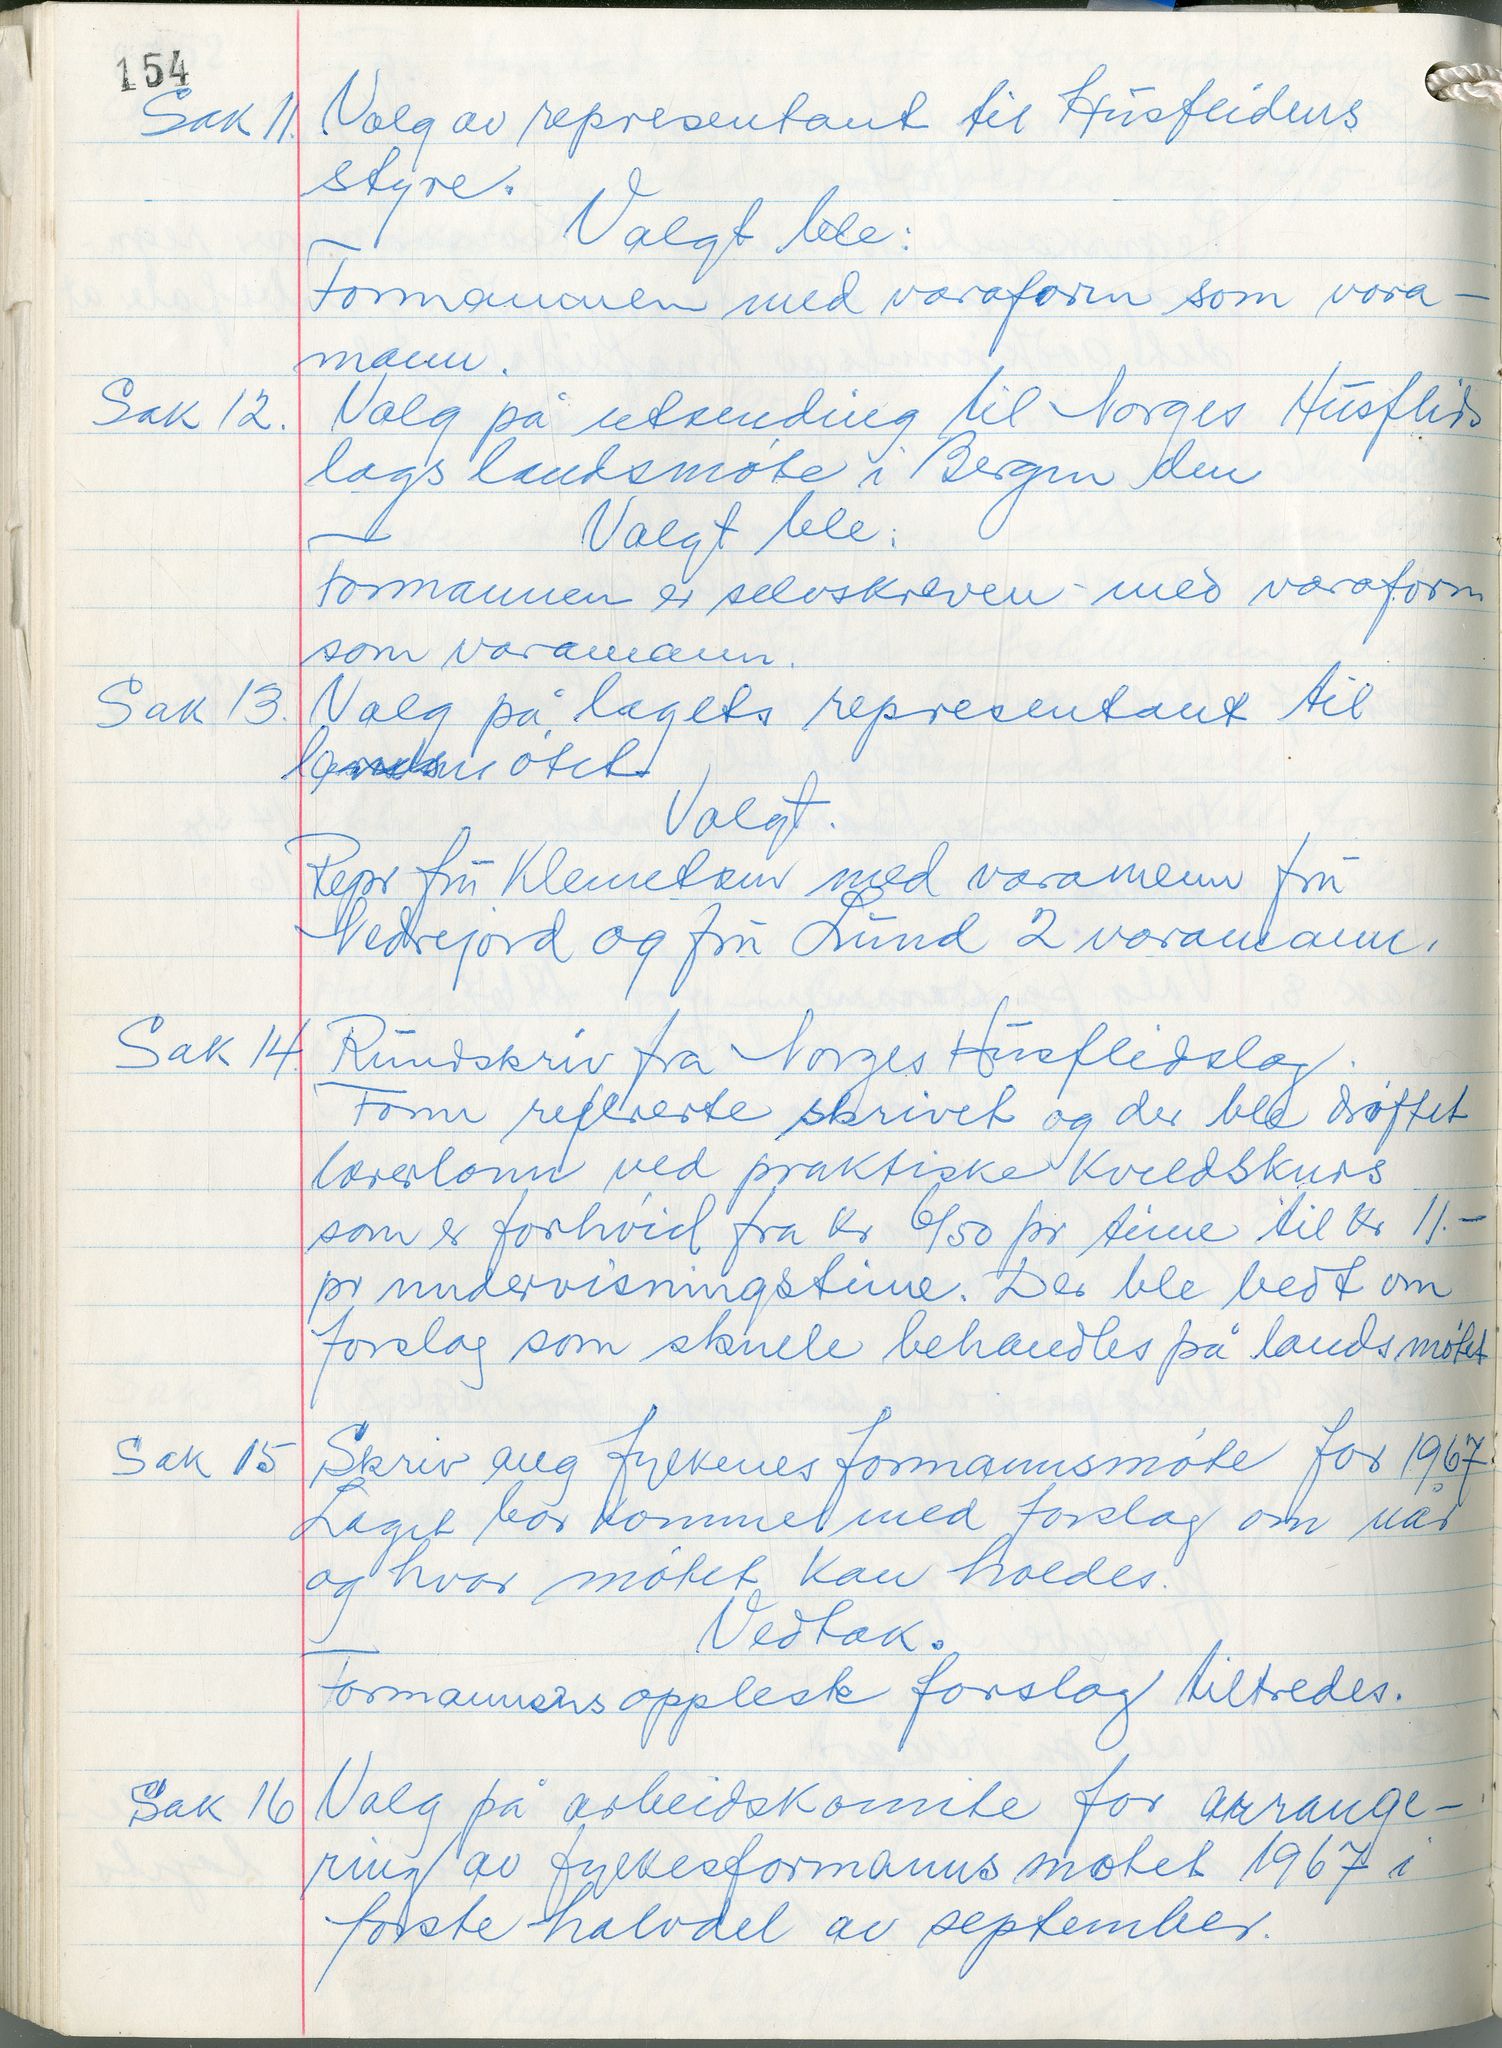 154
Sak 11. Valg av representant til Husflidens
styre.
Valgt ble:
Formannen med varaform som vara-
mann.
Sak 12. Valg på utsending til Norges Husflids
lags landsmøte i Bergen den
Valgt ble:
Formannen er selvskreven - med varaform
som varamann.
Sak 13. Valg på lagets representant til
landsmøtet
Valgt.
Repr fru Klemetsen med varamenn fru
Nedrejord og fru Lund 2 varamann.
Sak 14. Rundskriv fra Norges Husflidslag.
Form refererte skrivet og der ble drøftet
lærerlønn ved praktiske Kveldskurs
som er forhøid fra kr 6/50 pr time til kr 11.-
pr undervisningstime. Der ble bedt om
forslag som skulle behandles på landsmøtet
Sak 15 Skriv ang fylkenes formannsmøte for 1967.
Laget bør komme med forslag om når
og hvor møtet kan holdes.
Vedtak.
Formannens oppleste forslag tiltredes.
Sak 16 Valg på arbeidskomite for arrange-
ring av fylkesformanns møtet 1967 i
første halvdel av september.